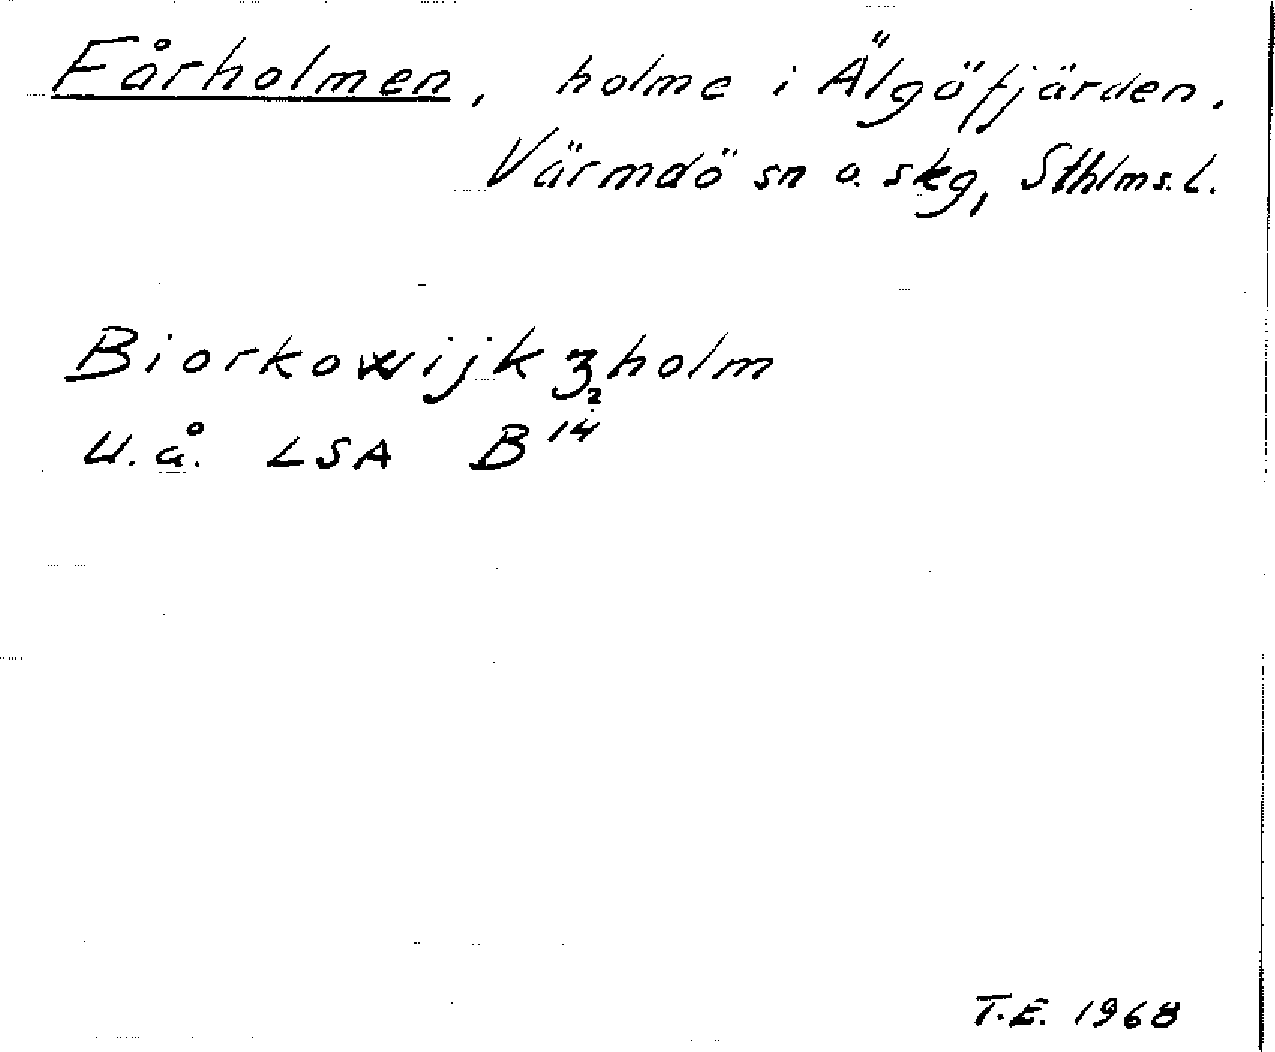 Fårholmen, holme i Älgöfjärden,
Värmdö sn o. skg, Sthlms. L.
Biorkowijkzholm
U.å. LSA B 14/2
T.E. 1968